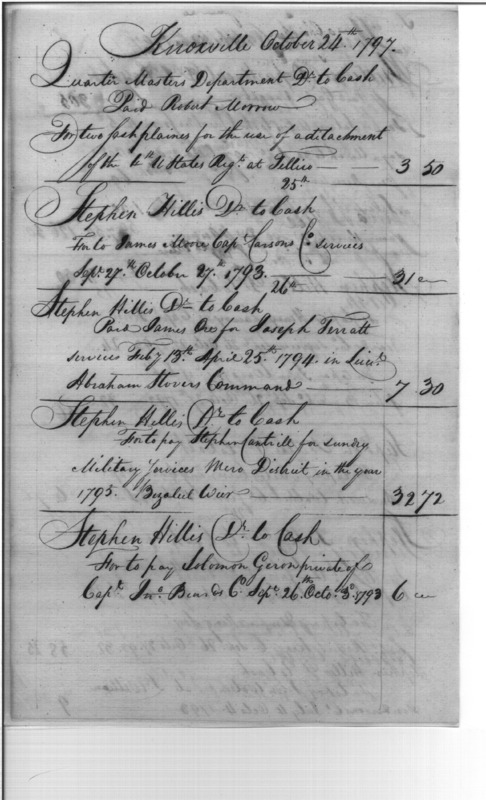 Knoxville October 24th. 1797.
Quarter Masters Department Dr. to Cash
Paid Robert Morrow
For two sash plaines for the use of a detachment
of the 4th U States Regt. at Tellico — 3 50
25th
Stephen Hillis Dr to Cash
For to James Moore Capt Carsons Co. services
Sept. 27th. October 27th. 1793. — 31
26th
Stephen Hillis Dr to Cash
Paid James for Joseph
services Feby 13th. April 25th 1794. in Lieut.
Abraham Stovers Command — 7 30
Stephen Hillis Dr to Cash
For to pay Stephen Cantrill for sundry
Military Services Mero District in the year
1795. Bezaleel Weir — 32 72
Stephen Hillis Dr. to Cash
For to pay Solomon Geron private of
Capt. Jno. Beards C. Sept. 26th. Octo. 3d. 1793 6